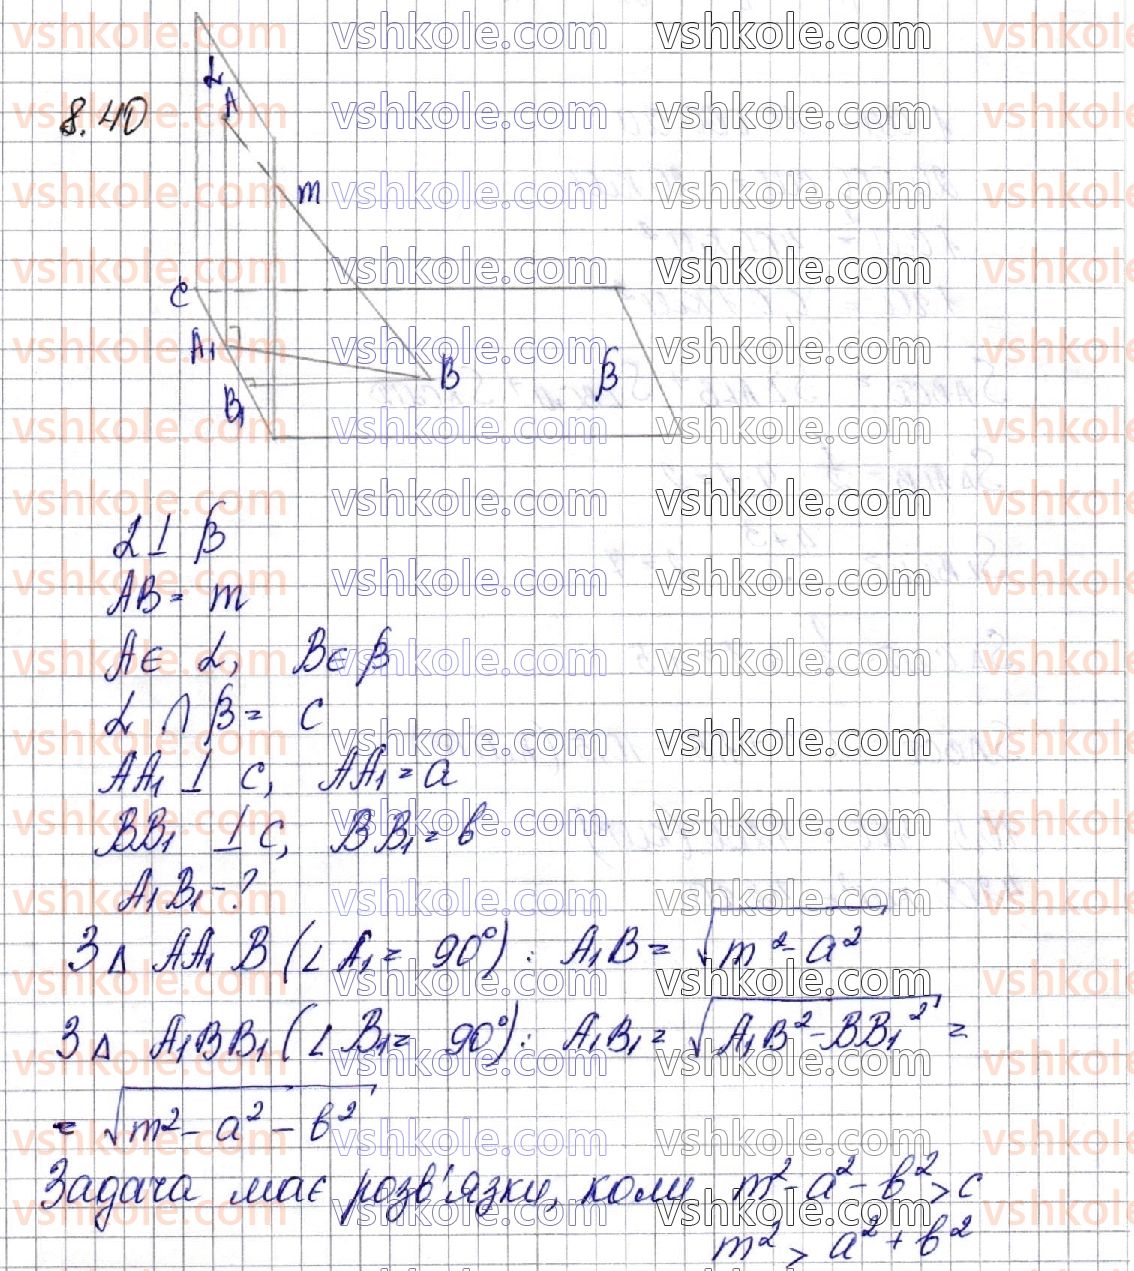 8.40
α
A
m
C
A₁
B
β
B₁
α ⊥ β
AB = m
A ∈ α, B ∈ β
α ∩ β = c
AA₁ ⊥ c, AA₁ = a
BB₁ ⊥ c, BB₁ = в
A₁B₁ - ?
З Δ AA₁B (∠A₁ = 90°): A₁B = √(m² - a²)
З Δ A₁BB₁ (∠B₁ = 90°): A₁B₁ = √(A₁B² - BB₁²) =
= √(m² - a² - в²)
Задача має розв'язки, коли m² - a² - в² > c
m² > a² + в²
vshkole.com